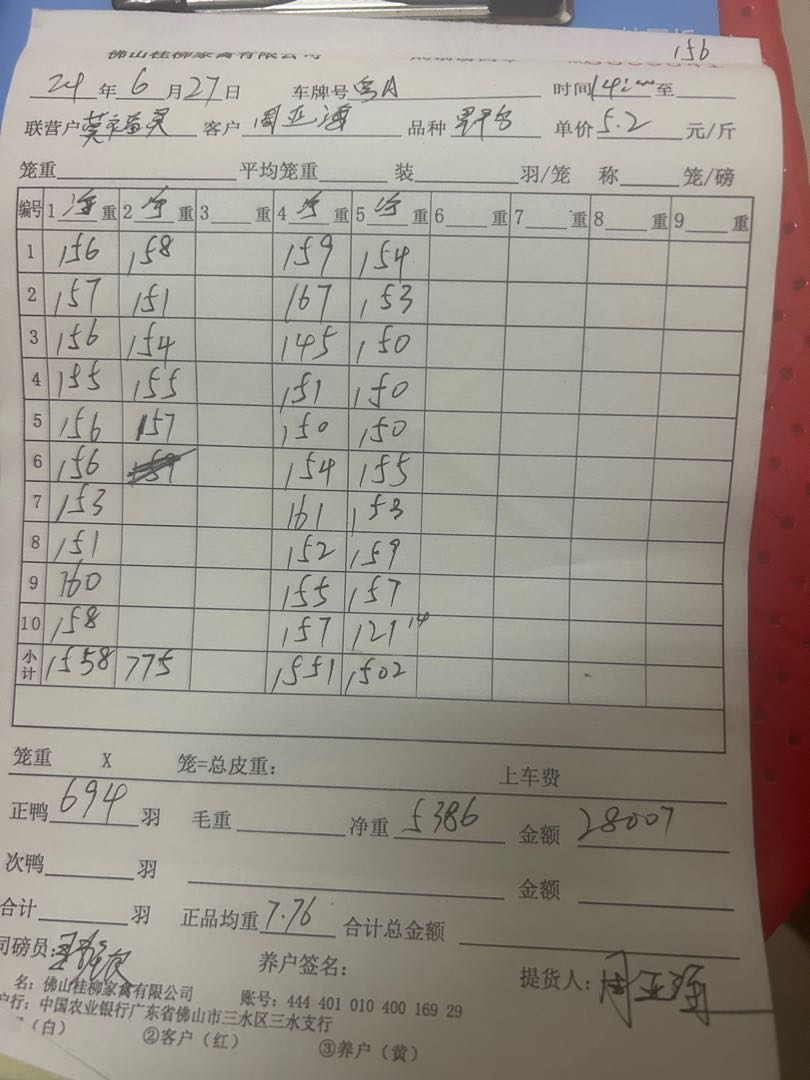 156
佛山桂柳家禽有限公司
24年6月27日 车牌号粤A 时间14:00至
联营户 客户周亚海 品种 单价5.2元/斤
笼重 平均笼重 装 羽/笼 称 笼/磅
编号 1净重 2净重 3 重 4净重 5净重 6 重 7 重 8 重 9 重
1 156 158 159 154
2 157 151 167 153
3 156 154 145 150
4 155 155 151 150
5 156 157 150 150
6 156 154 155
7 153 161 153
8 151 152 159
9 160 155 157
10 158 157 121 14
小计 1558 775 1551 1502
笼重 X 笼=总皮重: 上车费
正鸭694羽 毛重 净重5386 金额28007
次鸭 羽 金额
合计 羽 正品均重7.76 合计总金额
司磅员: 养户签名: 提货人:周亚海
名: 佛山桂柳家禽有限公司 账号: 444 401 010 400 169 29
户行: 中国农业银行广东省佛山市三水区三水支行
(白) ②客户(红) ③养户(黄)